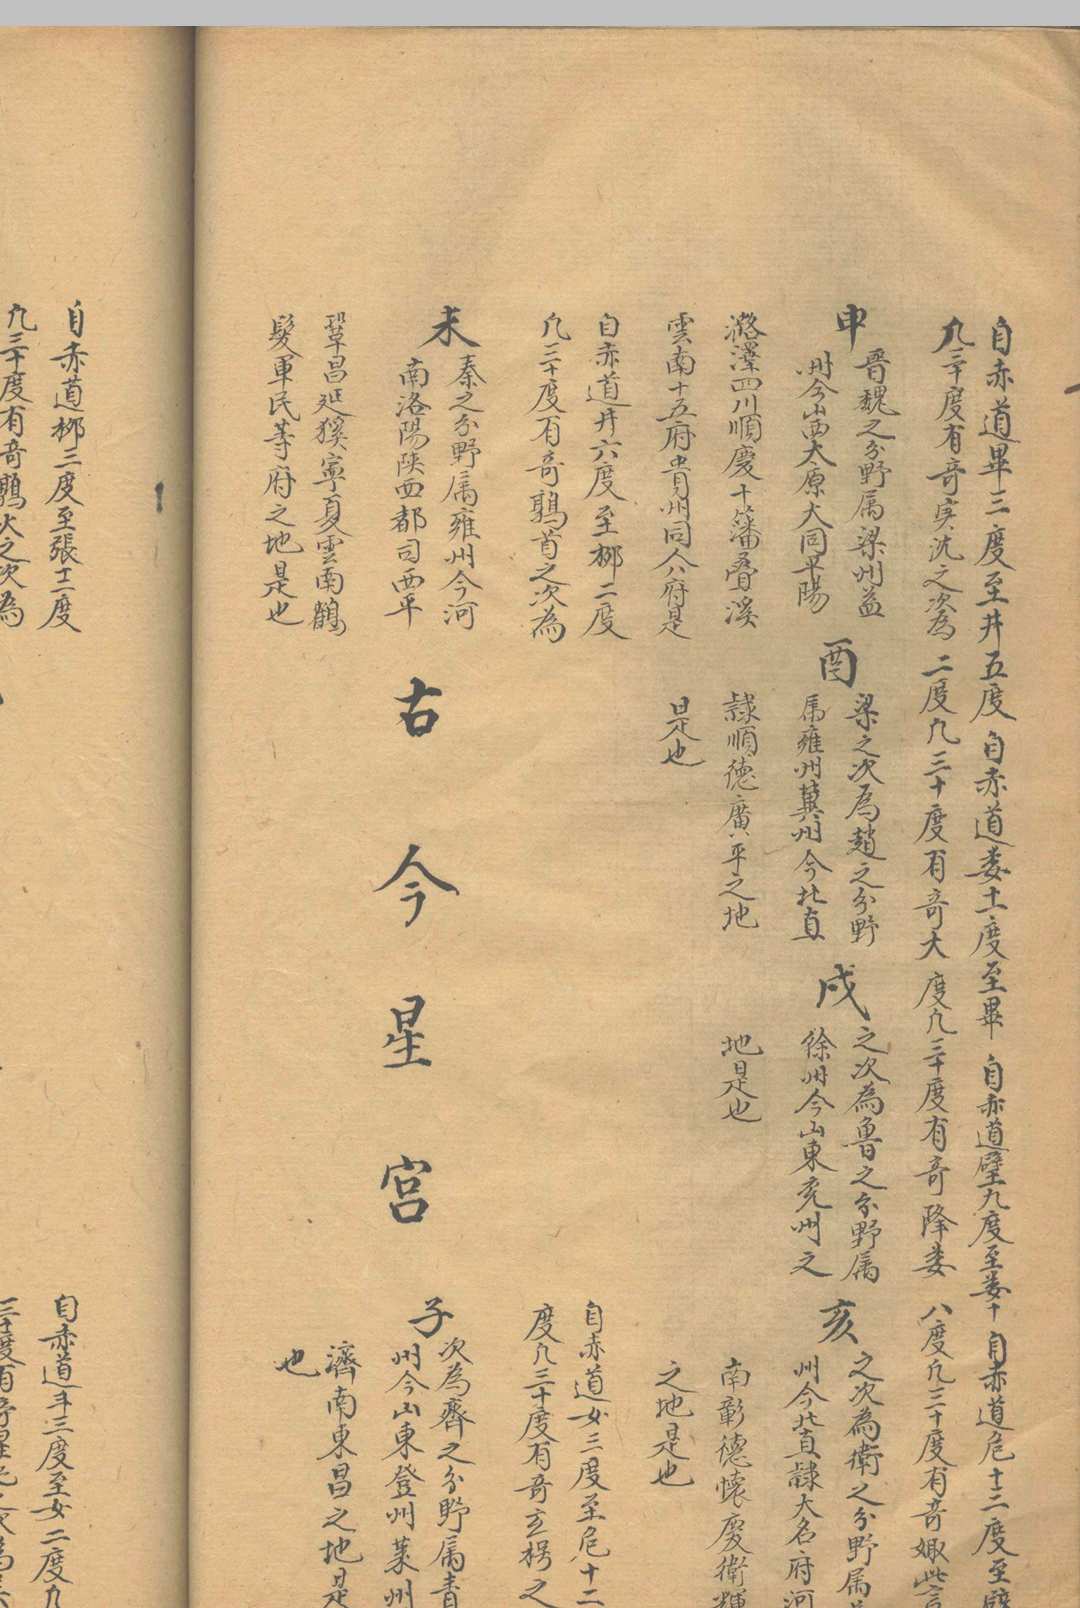 自赤道畢三度至井五度
凡三十度有奇实沈之次為
申
晉魏之分野属梁州益
州今山西大原大同平陽
潞澤四川順慶十藩疊溪
雲南十五府貴州同人八府是
自赤道婁十一度至畢
二度凡三十度有奇大
酉
梁之次為趙之分野
属雍州冀州今北直
隸順德廣平之地
是也
自赤道壁九度至婁十
度凡三十度有奇降婁
戌
之次為魯之分野属
徐州今山東兖州之
地是也
自赤道危十三度至壁
八度凡三十度有奇娵訾
亥
之次為衛之分野属
州今北直隸大名府河
南彰德懷慶衛輝
之地是也
自赤道井六度至柳二度
凡三十度有奇鶉首之次為
未
秦之分野属雍州今河
南洛陽陝西都司西平
鞏昌延寧夏雲南鶴
髮軍民等府之地是也
古今星宮
自赤道女三度至危十二
度凡三十度有奇玄枵之
子
次為齊之分野属青
州今山東登州萊州
濟南東昌之地是
也
自赤道柳三度至張十二度
凡三十度有奇鶉火之次為
自赤道斗三度至女二度凡
三十度有奇星紀之次為